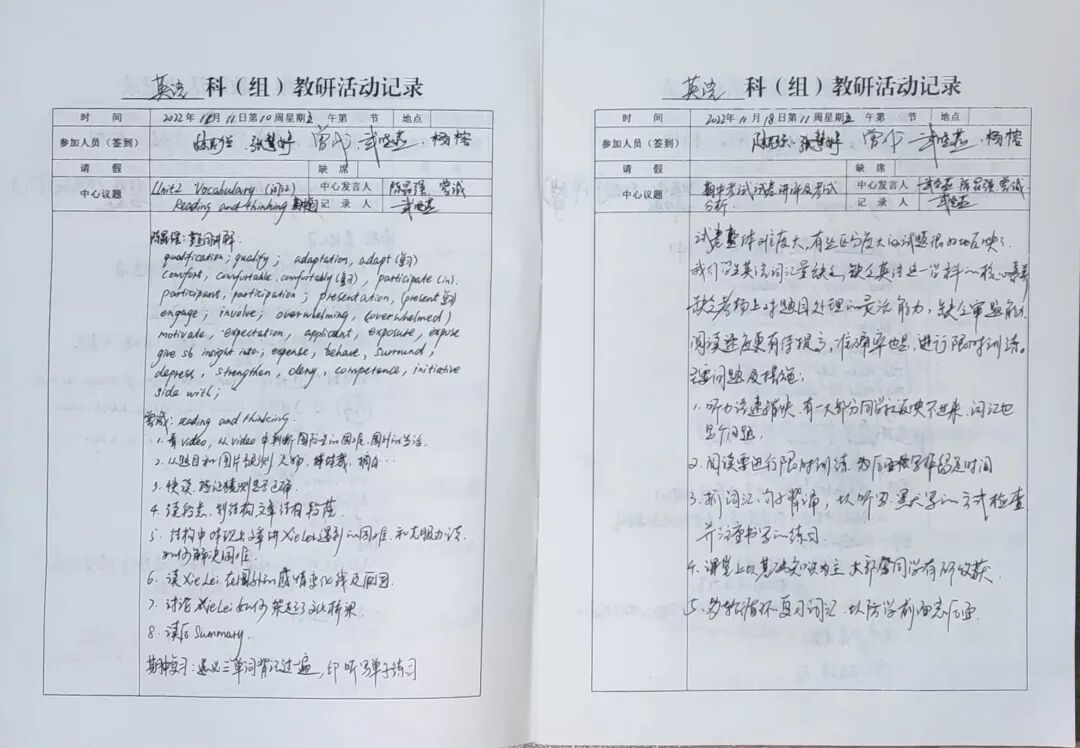 英语 科（组）教研活动记录
时 间 2022年11月11日第10周星期五 午第 节 地点
参加人员（签到） 曾诚 杨榕
请 假 缺 席
中心议题 Unit2 Vocabulary 中心发言人 陈昂强 曾诚
Reading and thinking 记 录 人
陈昂强：重点词讲解
qualification; qualify; adaptation, adapt (复习)
comfort, comfortable, comfortably (复习), participate (in)
participant, participation; presentation, (present 复习)
engage; involve; overwhelming, (overwhelmed)
motivate, expectation, applicant, exposure, expose
give sb insight into; expense, behave, surround,
depress, strengthen, deny, competence, initiative
side with;
曾诚: reading and thinking.
1. 看video, 从video中判断留学生的困难、国外的生活.
2. 从题目和图片预测 人物、
3. 快读、验证猜测是否正确
4. 读 文章结构
5. 结构中 Xie Lei遇到的困难、和克服方法.
如何解决困难.
6. 读Xie Lei 在国外的感情变化线及原因.
7. 讨论 Xie Lei 如何 文化桥梁
8. 读后 Summary.
期中复习: 必修三单词背记过一遍, 印听写单子练习
英语 科（组）教研活动记录
时 间 2022年11月18日第11周星期五 午第 节 地点
参加人员（签到） 曾诚 杨榕
请 假 缺 席
中心议题 期中考试试卷讲评及考试 中心发言人 陈昂强 曾诚
分析. 记 录 人
试卷整体难度大, 有些区分度大的试题很好地反映了
我们学生英语词汇量缺乏, 缺乏英语这一学科的核心素养
缺乏考场上对题目处理的灵活能力, 缺乏审题能力
阅读速度更有待提高, 准确率也是, 进行限时训练。
主要问题及措施:
1. 听力语速稍快, 有一大部分同学 反映不过来, 词汇也
是个问题.
2. 阅读要进行限时训练, 为后面 写作留足时间
3. 抓词汇、句子背诵, 以听写、默写的方式检查
并注重书写的练习.
4. 课堂上以基础 为主, 大部分同学有所收获.
5. 多轮循环复习词汇, 以防学前面忘后面.